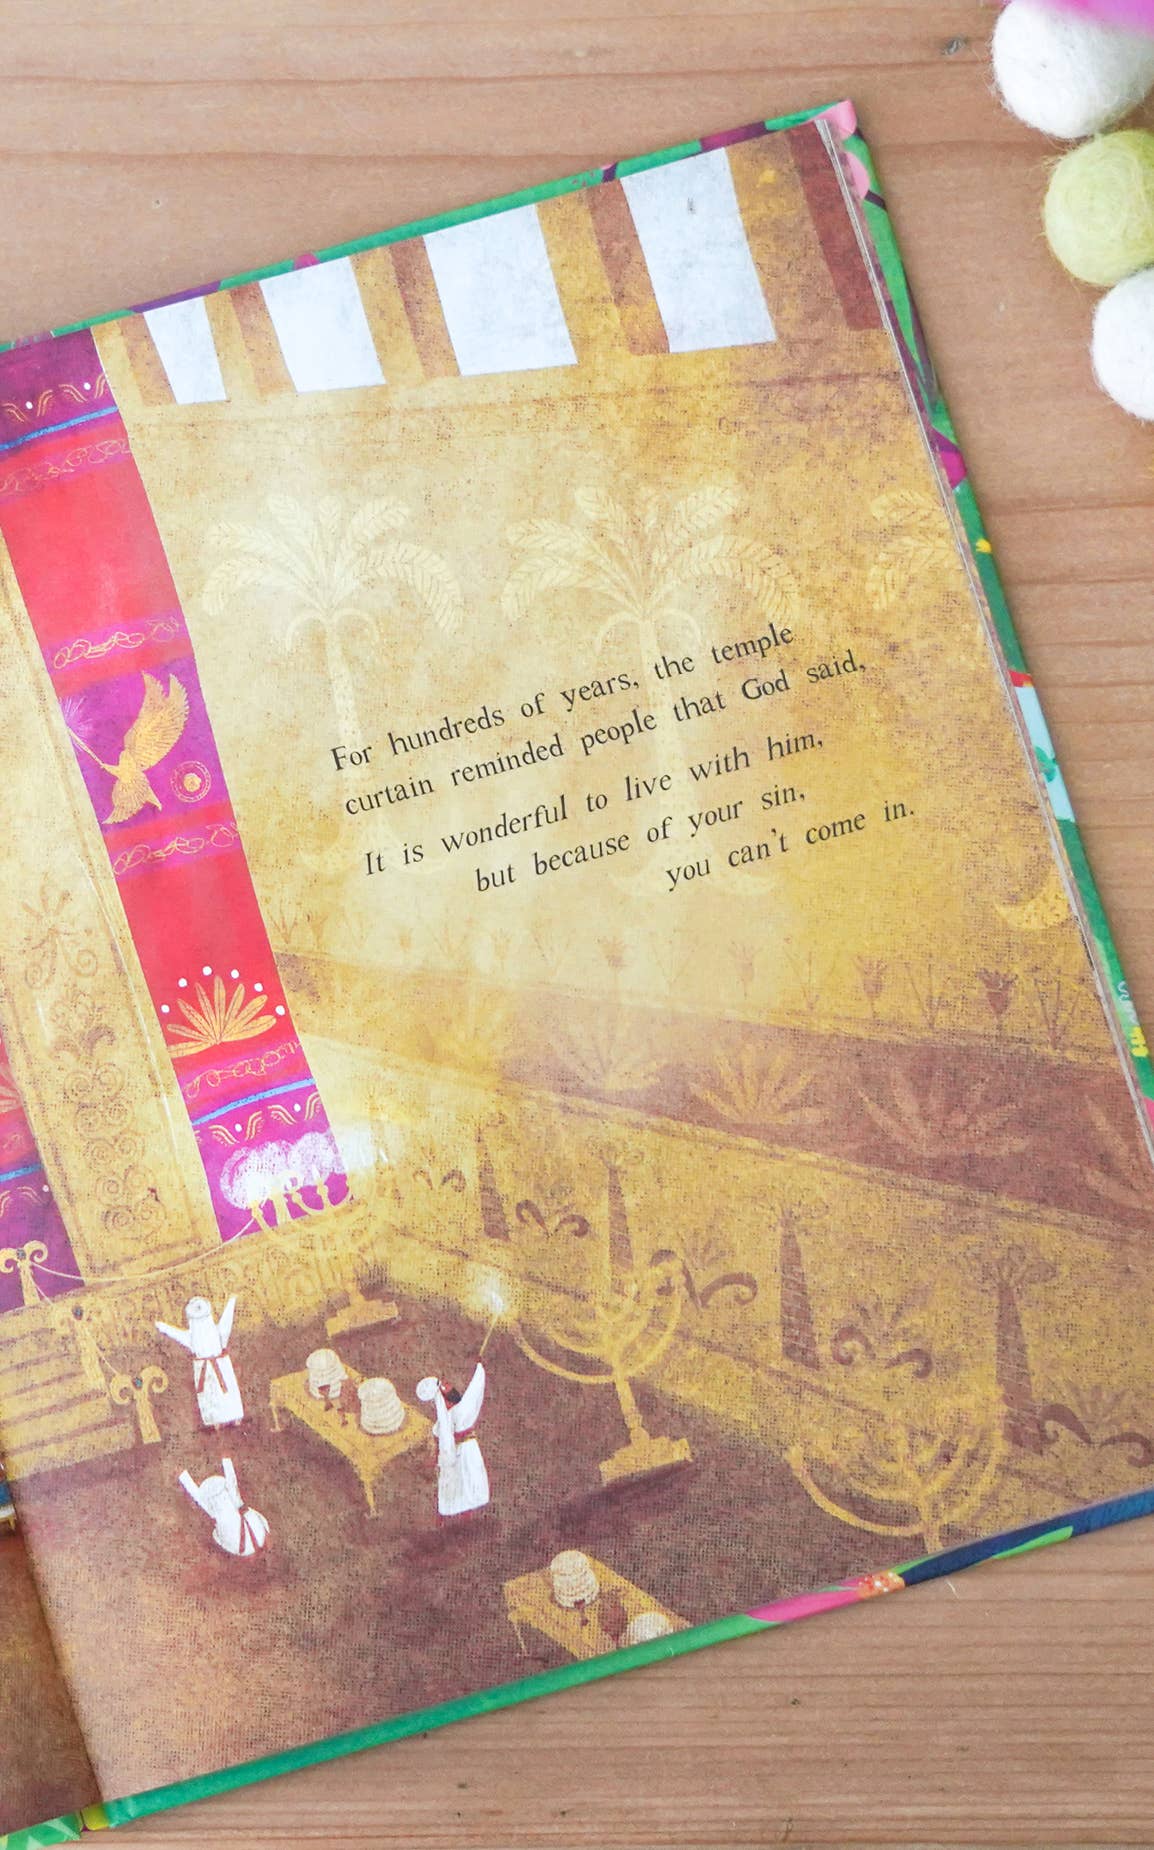 For hundreds of years, the temple
curtain reminded people that God said,
It is wonderful to live with him,
but because of your sin,
you can't come in.